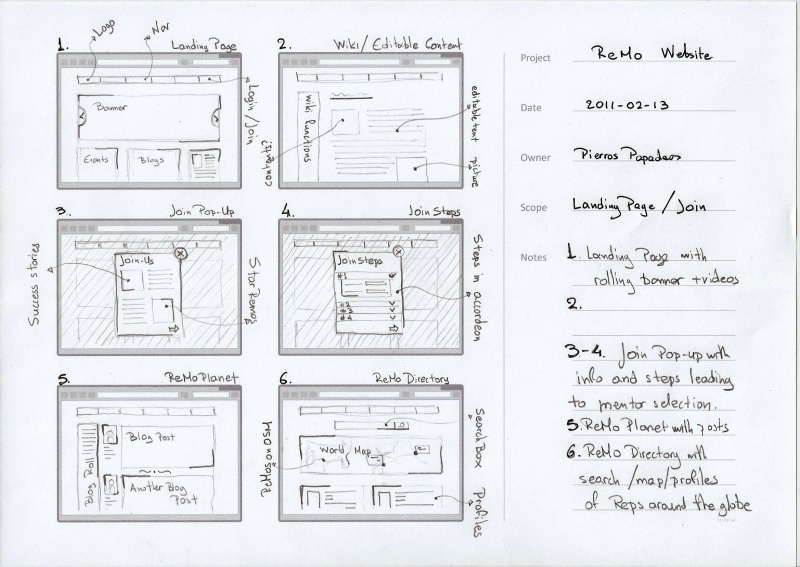 1. Landing Page
Logo
Nav
Login/Join
Banner
Events
Blogs
2. Wiki/Editable Content
Wiki Functions
contents
editable text
picture
3. Join Pop-Up
Join-Us
Success stories
4. Join Steps
Join Steps
#1
#2
#3
#4
Steps in accordeon
5. ReMo Planet
Blog Roll
Blog Post
Another Blog
Post
6. ReMo Directory
World Map
ReMos on OSM
Search Box
Profiles
Project ReMo Website
Date 2011-02-13
Owner Pierros Papadeas
Scope Landing Page / Join
Notes 1. Landing Page with
rolling banner + videos
2.
3-4. Join Pop-up with
info and steps leading
to mentor selection.
5. ReMo Planet with posts
6. ReMo Directory with
search/map/profiles
of Reps around the globe